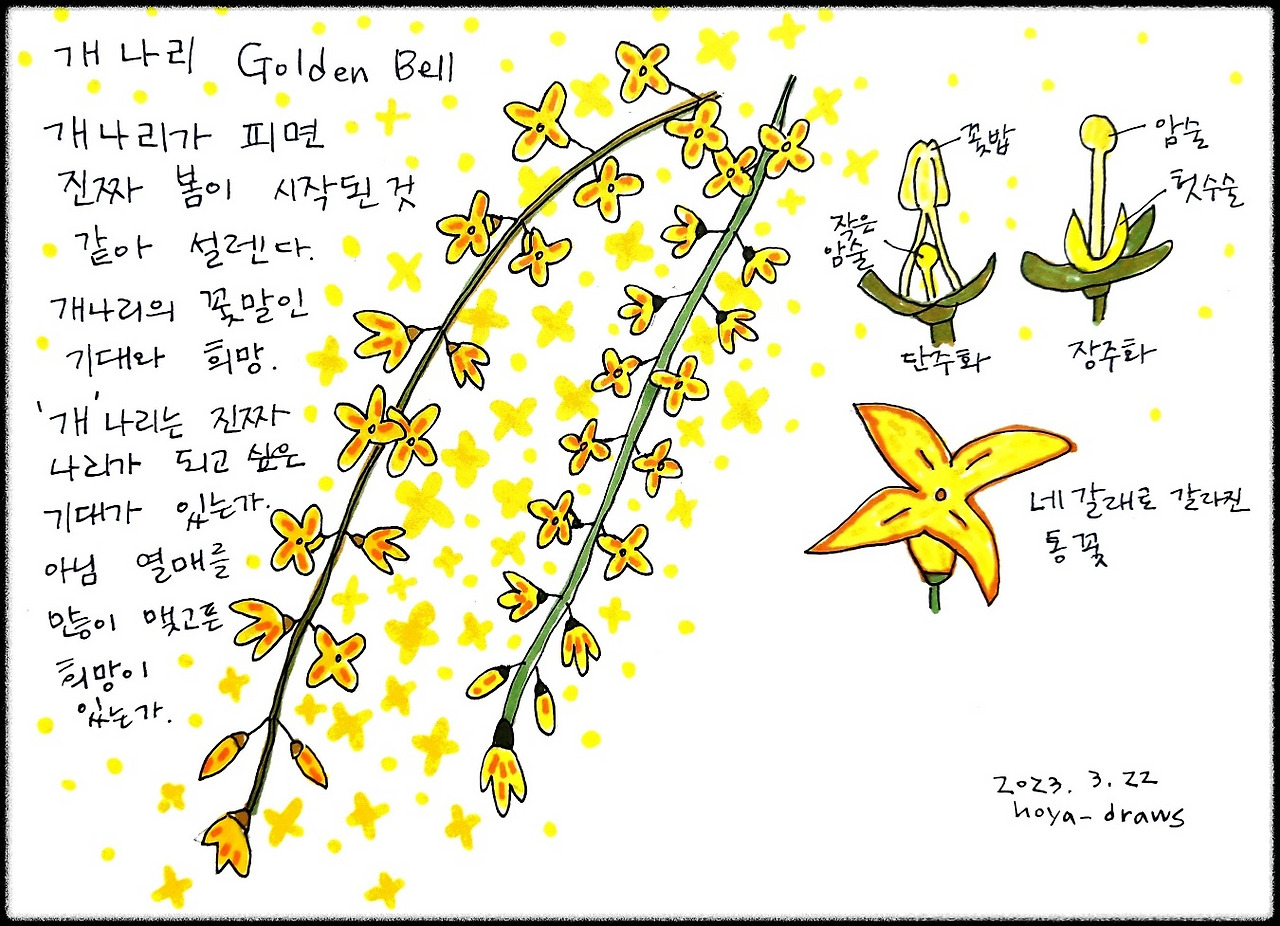 개나리 Golden Bell
개나리가 피면
진짜 봄이 시작된 것
같아 설렌다.
개나리의 꽃말인
기대와 희망.
'개'나리는 진짜
나리가 되고 싶은
기대가 있는가.
아님 열매를
많이 맺고픈
희망이
있는가.
꽃밥
작은
암술
단주화
암술
헛수술
장주화
네 갈래로 갈라진
통꽃
2023. 3. 22
hoya-draws